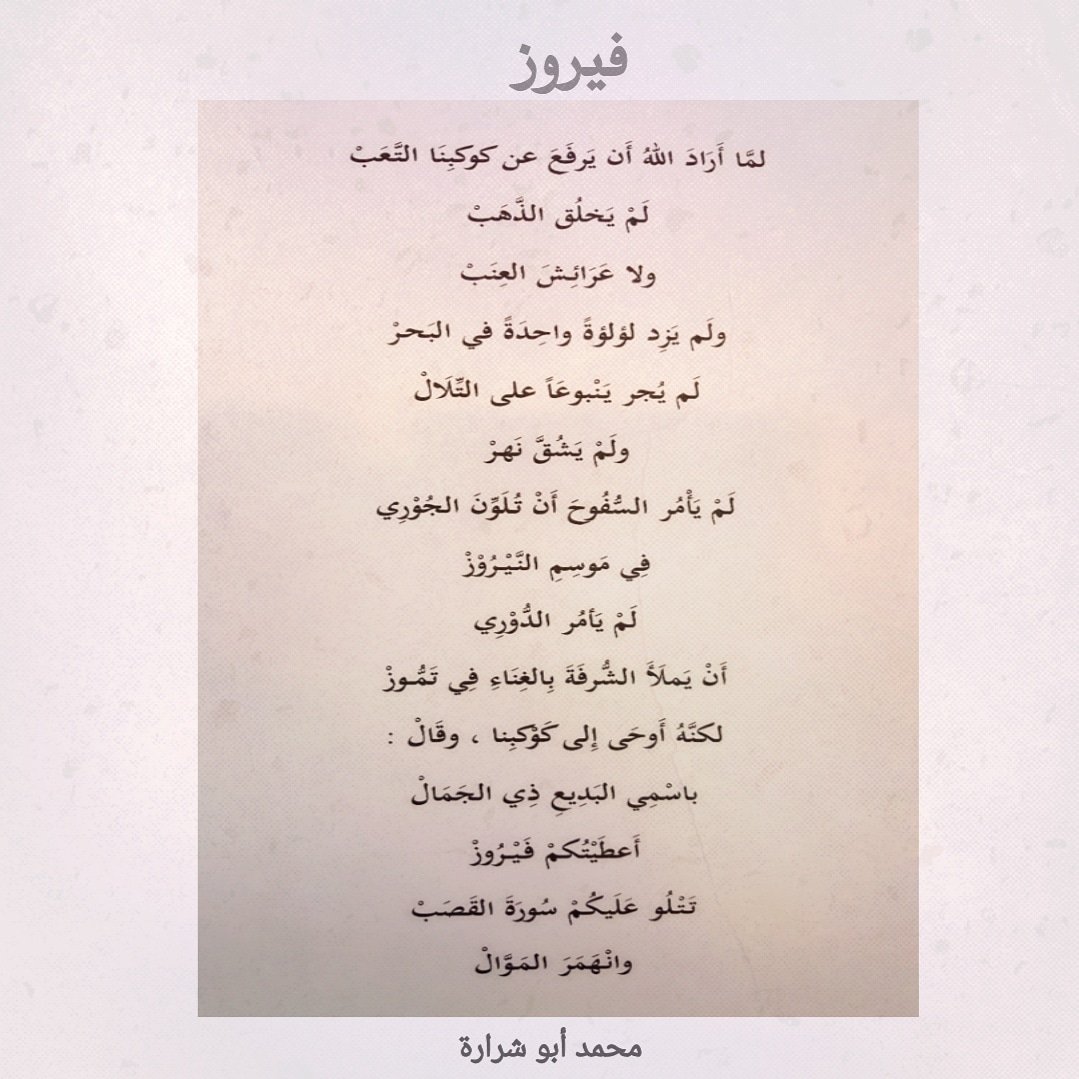 فيروز
لمَّا أَرَادَ اللهُ أَن يَرفَعَ عن كوكبِنَا التَّعَبْ
لَمْ يَخلُق الذَّهَبْ
ولا عَرَائِشَ العِنَبْ
ولَم يَزِد لؤلؤةً واحِدَةً في البَحرْ
لَم يُجرِ يَنْبوعَاً على التِّلَالْ
ولَمْ يَشُقَّ نَهرْ
لَمْ يَأْمُر السُّفُوحَ أَنْ تُلَوِّنَ الجُوْرِي
فِي مَوسِمِ النَّيْرُوْزْ
لَمْ يَأمُر الدُّوْرِي
أَنْ يَملَأَ الشُّرفَةَ بِالغِنَاءِ فِي تَمُّوزْ
لكنَّهُ أَوحَى إِلى كَوْكبِنا ، وقَالْ :
باسْمِي البَدِيعِ ذِي الجَمَالْ
أَعطَيْتُكمْ فَيْرُوزْ
تَتْلُو عَلَيكُمْ سُورَةَ القَصَبْ
وانْهَمَرَ المَوَّالْ
محمد أبو شرارة